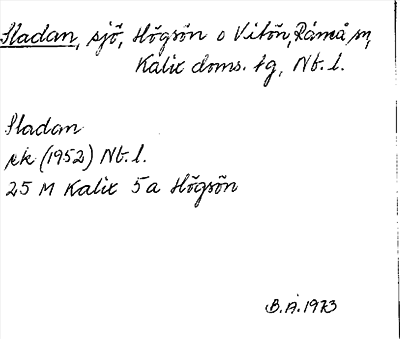 Sladan, sjö, Högsön o Vitön, Råneå sn,
Kalix doms. tg, Nb. l.
Sladan
rk (1952) Nb. l.
25 M Kalix 5a Högsön
B. Å. 1973